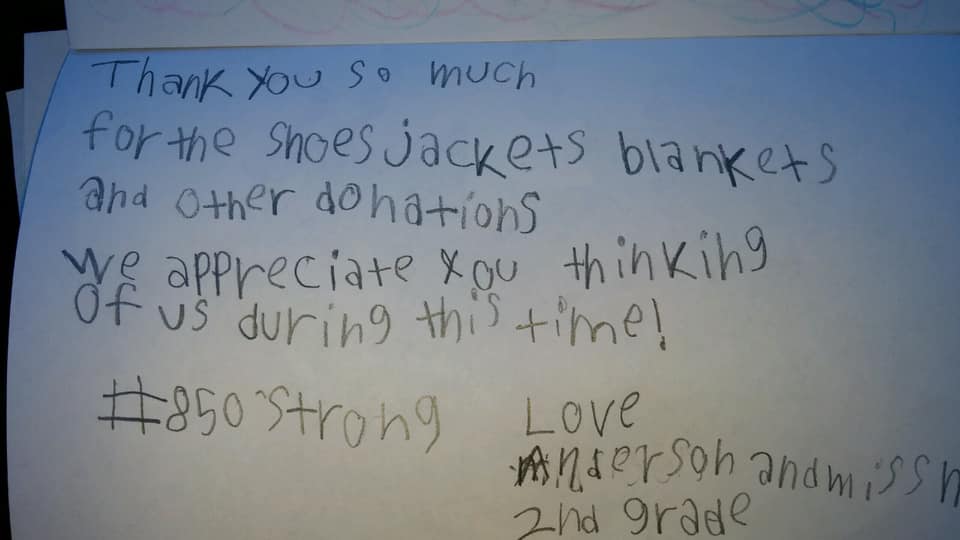 Thank you so much
for the shoes jackets blankets
and other donations
We appreciate you thinking
of us during this time!
#850 Strong Love
Anderson and miss n
2nd grade